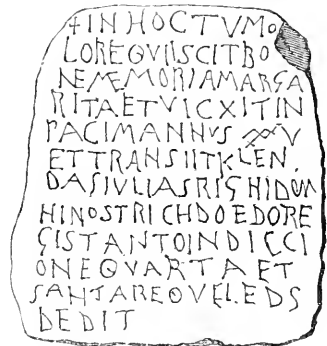 + INHOCTVMO
LOREQVIISCITBO
NEMEMORIAMARGA
RITAETVICXITIN
PACIMANNVS XXXV
ETTRANSIITKLEN
DASIVLIASRIGHIDOM
HINOSTRICHDOEDORE
GISTANTOINDICCI
ONEQVARTAET
SANTAREQVELEDS
DEDIT